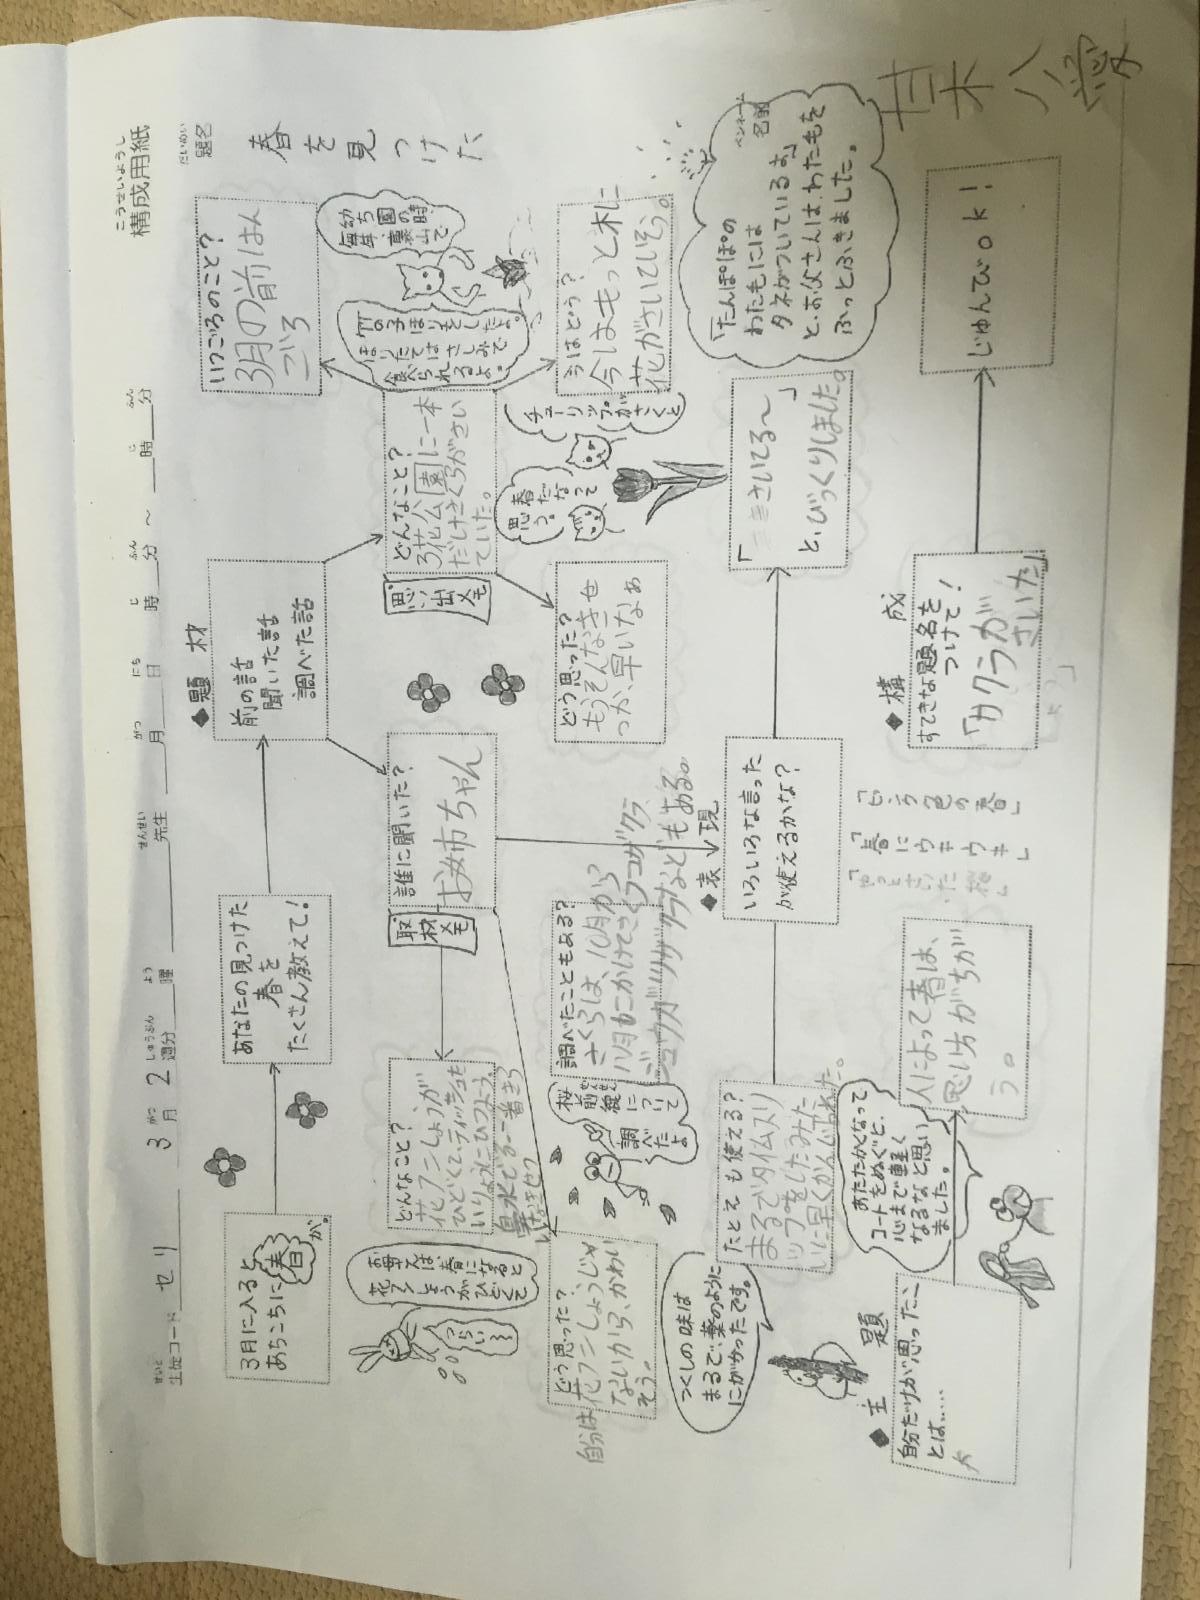 こうせいようし
構成用紙
せいと
生徒コード セリ
3月2週分
がつ しゅうぶん よう がつ にち じ ふん じ ふん
曜 先生 月 日 時 分 ～ 時 分
せんせい
だいめい
題名
春を見つけた
ペンネーム
名前
3月に入ると
あちこちに春が。
あなたの見つけた
春を
たくさん教えて！
◆題 材
前の話
聞いた話
調べた話
いつごろのこと？
3月の前はん
ごろ
幼ち園の時
毎年、裏山で
竹の子ほりをしたよ。
ほりたてはさしみで
食べられるよ。
どんなこと？
3花公園に一本
だけさくらがさい
ていた。
思い出メモ
今はどう？
今はもっと木に
花がさいていそう。
どう思った？
もうそんなきせ
つか、早いなぁ
チューリップがさくと
春だなって
思う。
誰に聞いた？
お姉ちゃん
取材メモ
どんなこと？
花フンしょうが
ひどくて、ティッシュを
いりょうにひつよう。
鼻水でるー着きら
いなきせつ
お母さんは、春になると
花フンしょうがひどくて
つらい～
どう思った？
自分は花フンしょうじゃ
ないから、かわい
そう。
調べたこともある？
さくらは、10月から
11月もにかけてさくフユザクラ
ジュウガツザクラなどもある。
桜前線
ぜんせん
について
調べたよ
◆表 現
いろいろな言った
が使えるかな？
「さいてる～」
と、びっくりしました。
「たんぽぽの
わた毛には
タネがついているよ。」
と、お父さんは、わた毛を
ふっとふきました。
たとえも使える？
まるでタイムスリ
ップをしたみた
いに早くかんじられた。
つくしの味は
まるで、薬のように
にがかったです。
◆主 題
自分だけが思ったこ
とは……
人によって春は、
思い方がちが
う。
あたたかくなって
コートをぬぐと、
心まで軽く
なるなと思い
ました。
◆構 成
すてきな題名を
つけて！
「サクラが
さいた」
「いろ色の春」
「春にウキウキ」
「やっとさいた桜」
じゅんびok！